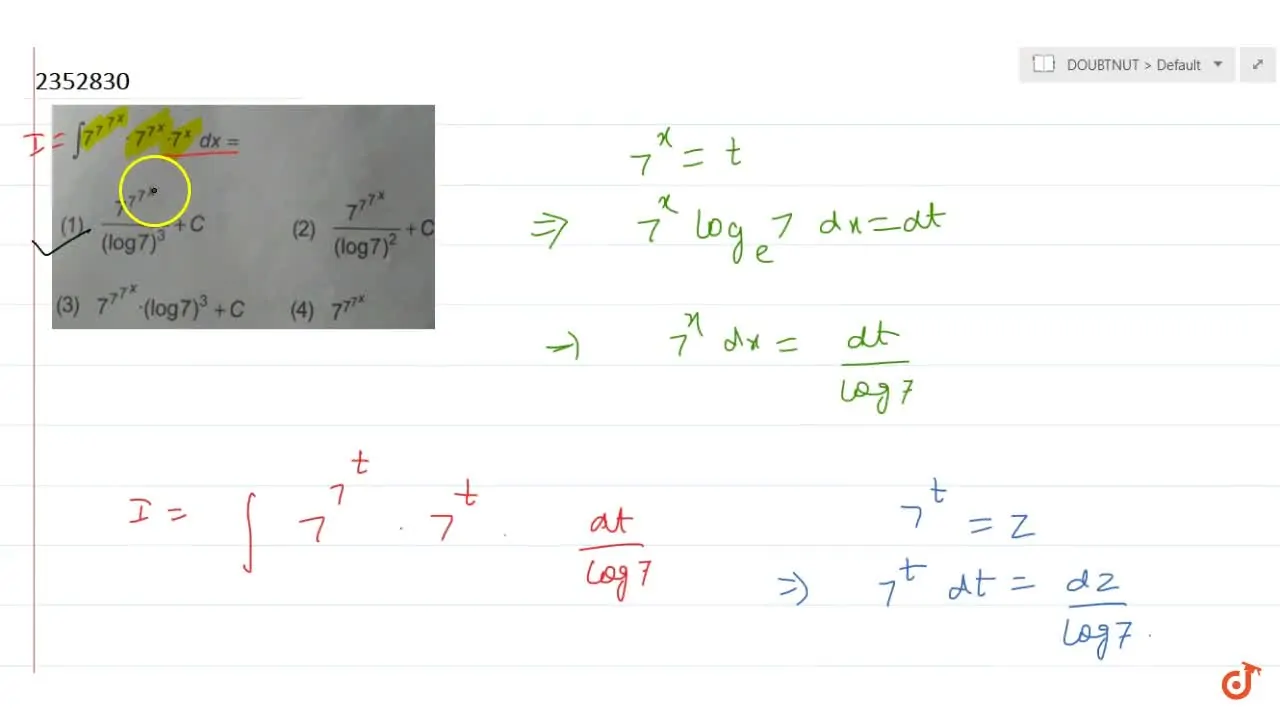 DOUBTNUT > Default
2352830
I = ∫ 7^{7^{7^x}} · 7^{7^x} · 7^x dx =
(1) 7^{7^{7^x}} / (log7)^3 + C
(2) 7^{7^{7^x}} / (log7)^2 + C
(3) 7^{7^{7^x}} · (log7)^3 + C
(4) 7^{7^{7^x}}
7^x = t
⇒ 7^x log_e 7 dx = dt
→ 7^x dx = dt / log 7
I = ∫ 7^{7^t} · 7^t · dt / log 7
7^t = z
⇒ 7^t dt = dz / log 7 .